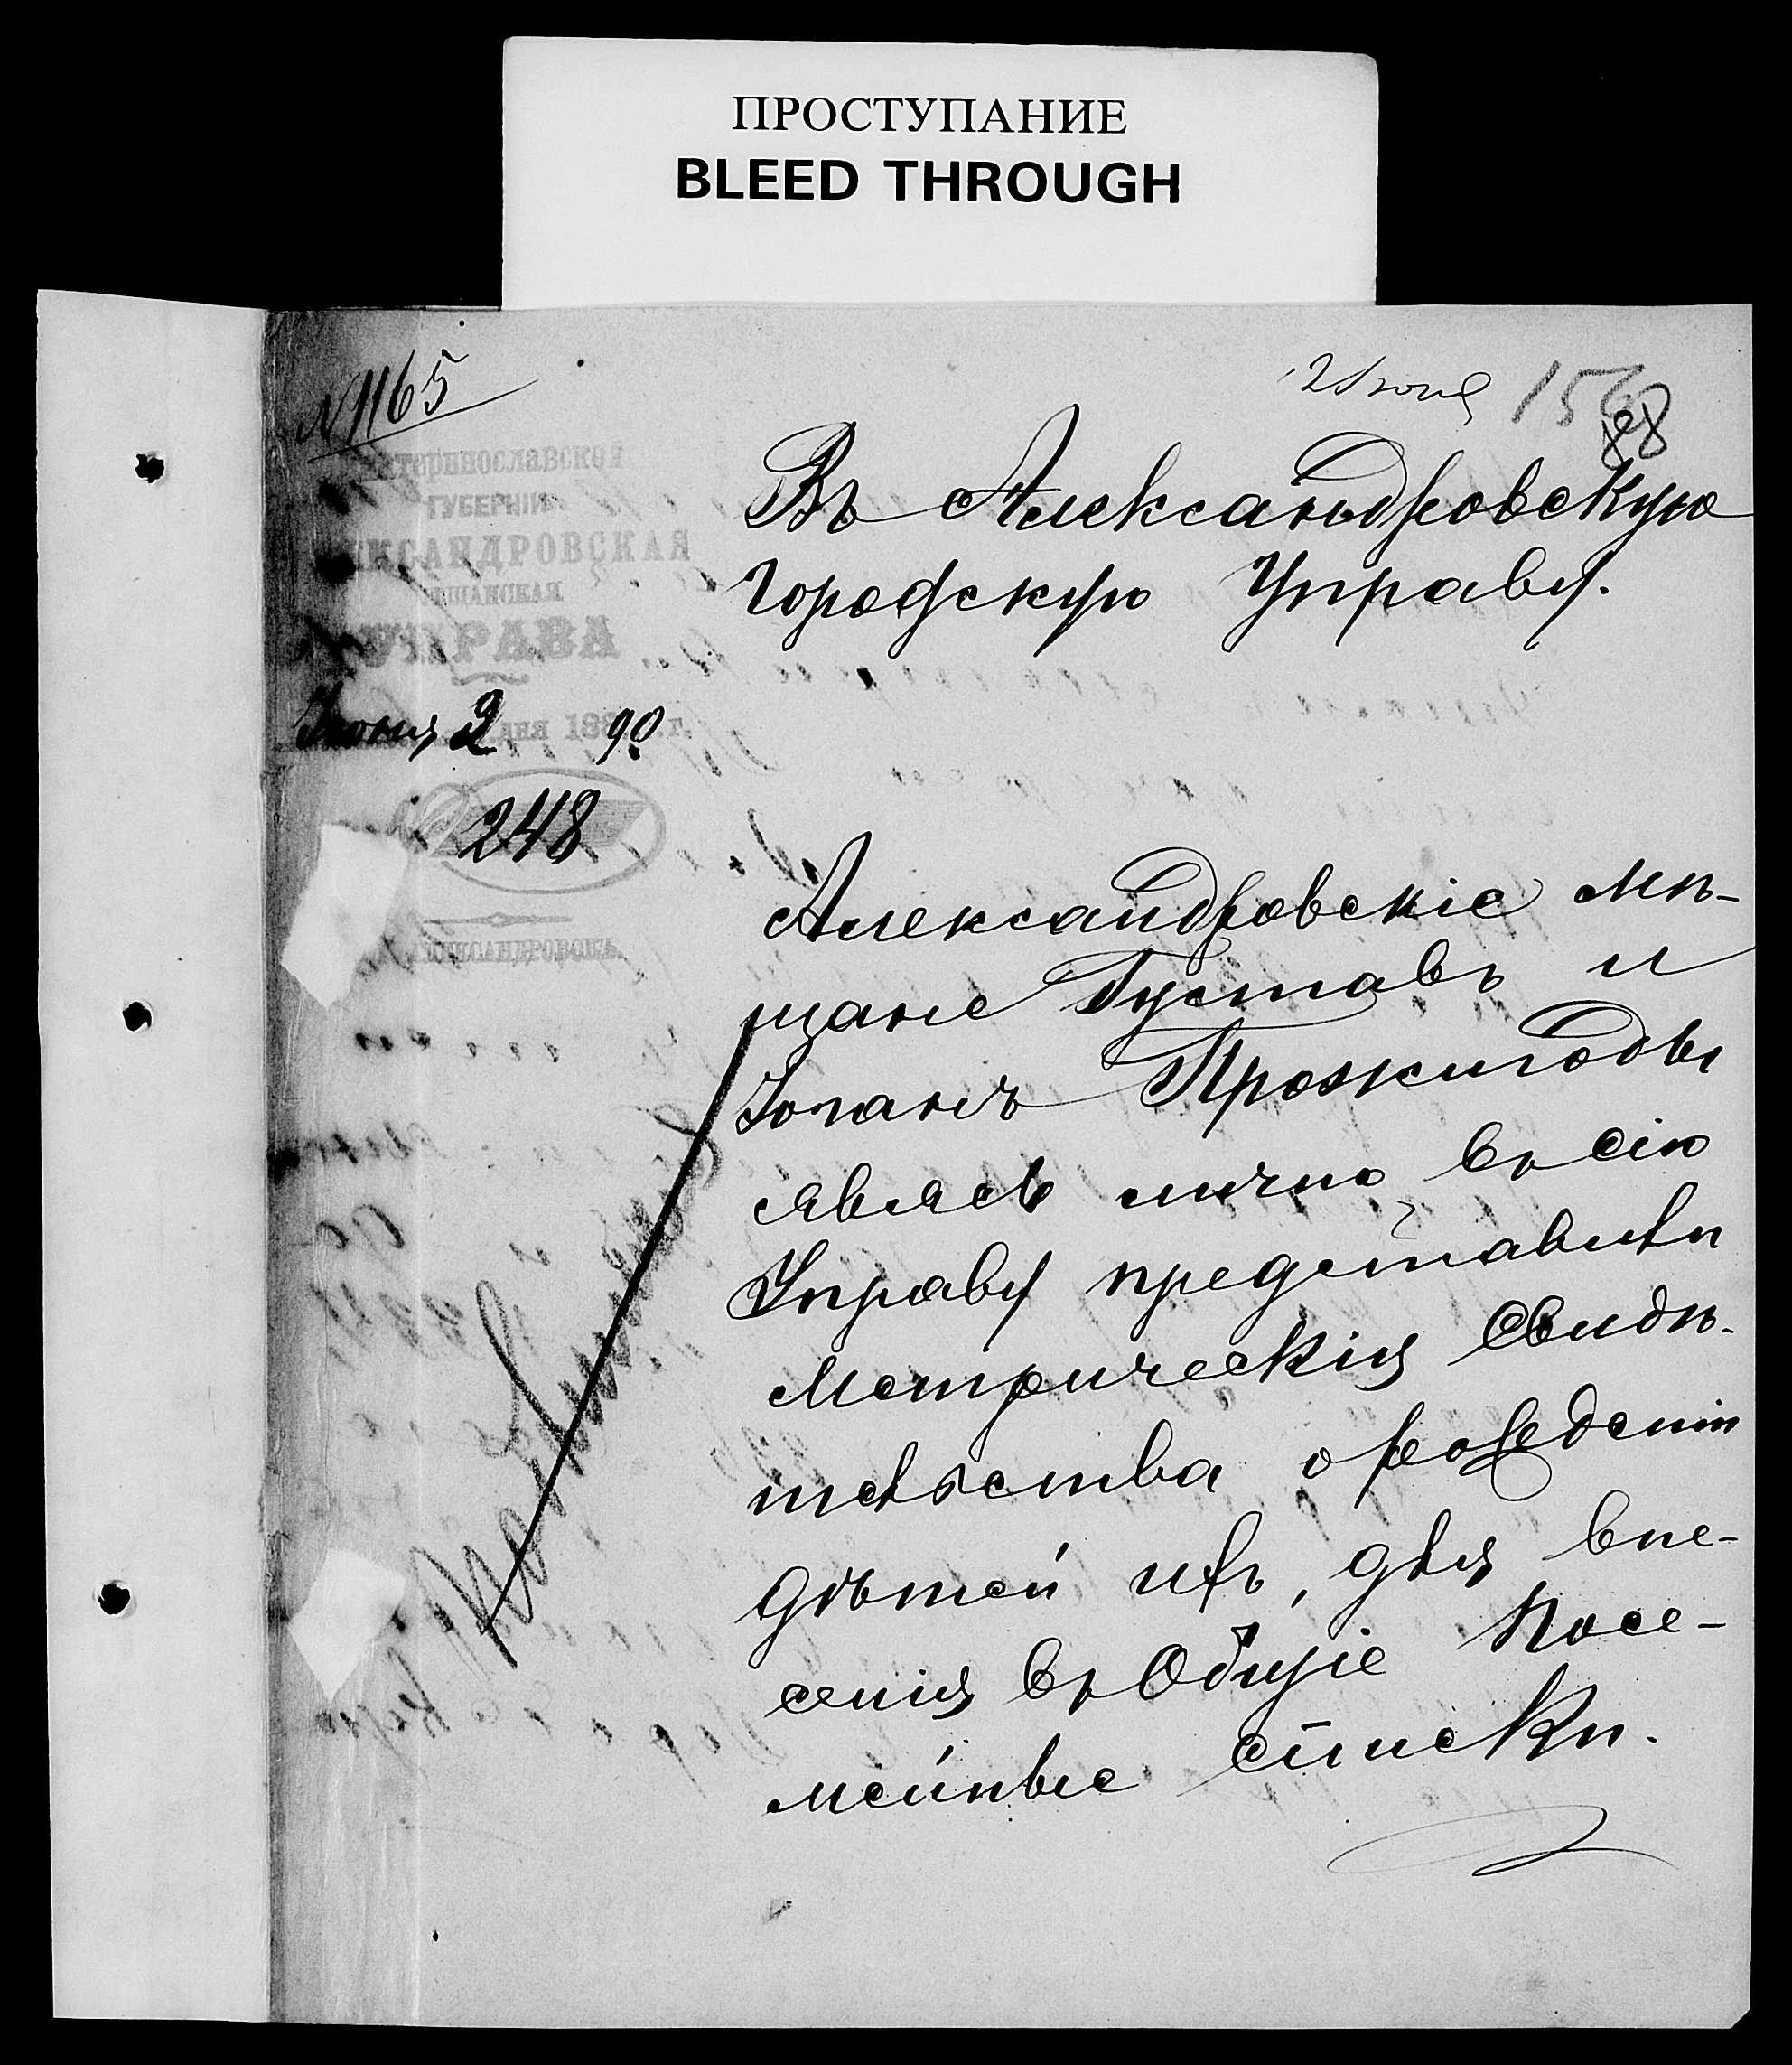 ПРОСТУПАНИЕ
BLEED THROUGH
№1165
12 Іюня
88
Екатеринославская
ГУБЕРНІЯ
АЛЕКСАНДРОВСКАЯ
МѢЩАНСКАЯ
УПРАВА
Іюня 2 дня 1890 г.
248
АЛЕКСАНДРОВСКЪ.
Въ Александровскую
Городскую Управу.
Александровскіе мѣ-
щане Густавъ и
Іоганъ
явясь лично въ сію
Управу представили
Метрическія свидѣ-
тельства о рожденіи
дѣтей ихъ, для вне-
сенія въ Общіе Посе-
мейные списки.